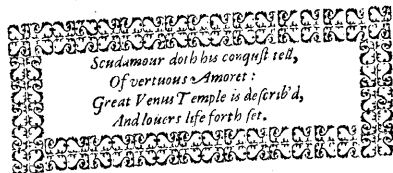 Scudamour doth his conqueſt tell,
Of vertuous Amoret:
Great Venus Temple is deſcrib'd,
And louers life forth ſet.